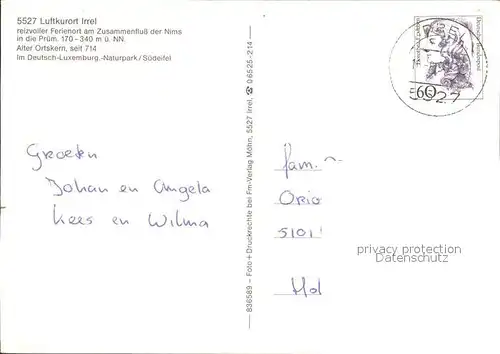 5527 Luftkurort Irrel
reizvoller Ferienort am Zusammenfluß der Nims
in die Prüm. 170 - 340 m ü. NN.
Alter Ortskern, seit 714
Im Deutsch-Luxemburg.-Naturpark/Südeifel
Groeten
Johan en Angela
Kees en Wilma
836589 – Foto + Druckrechte bei Fm-Verlag Möhn, 5527 Irrel, ☎ 06525-214
60
5527
fam.
Orio
5101
Hd
privacy protection
Datenschutz